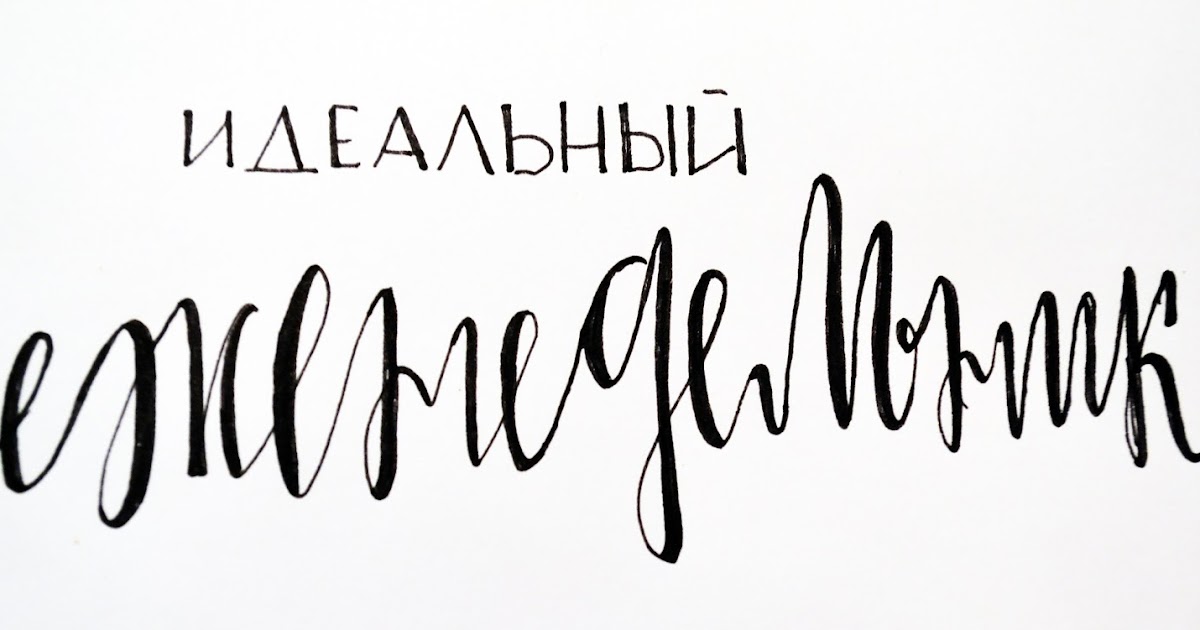 ИДЕАЛЬНЫЙ
еженедельник